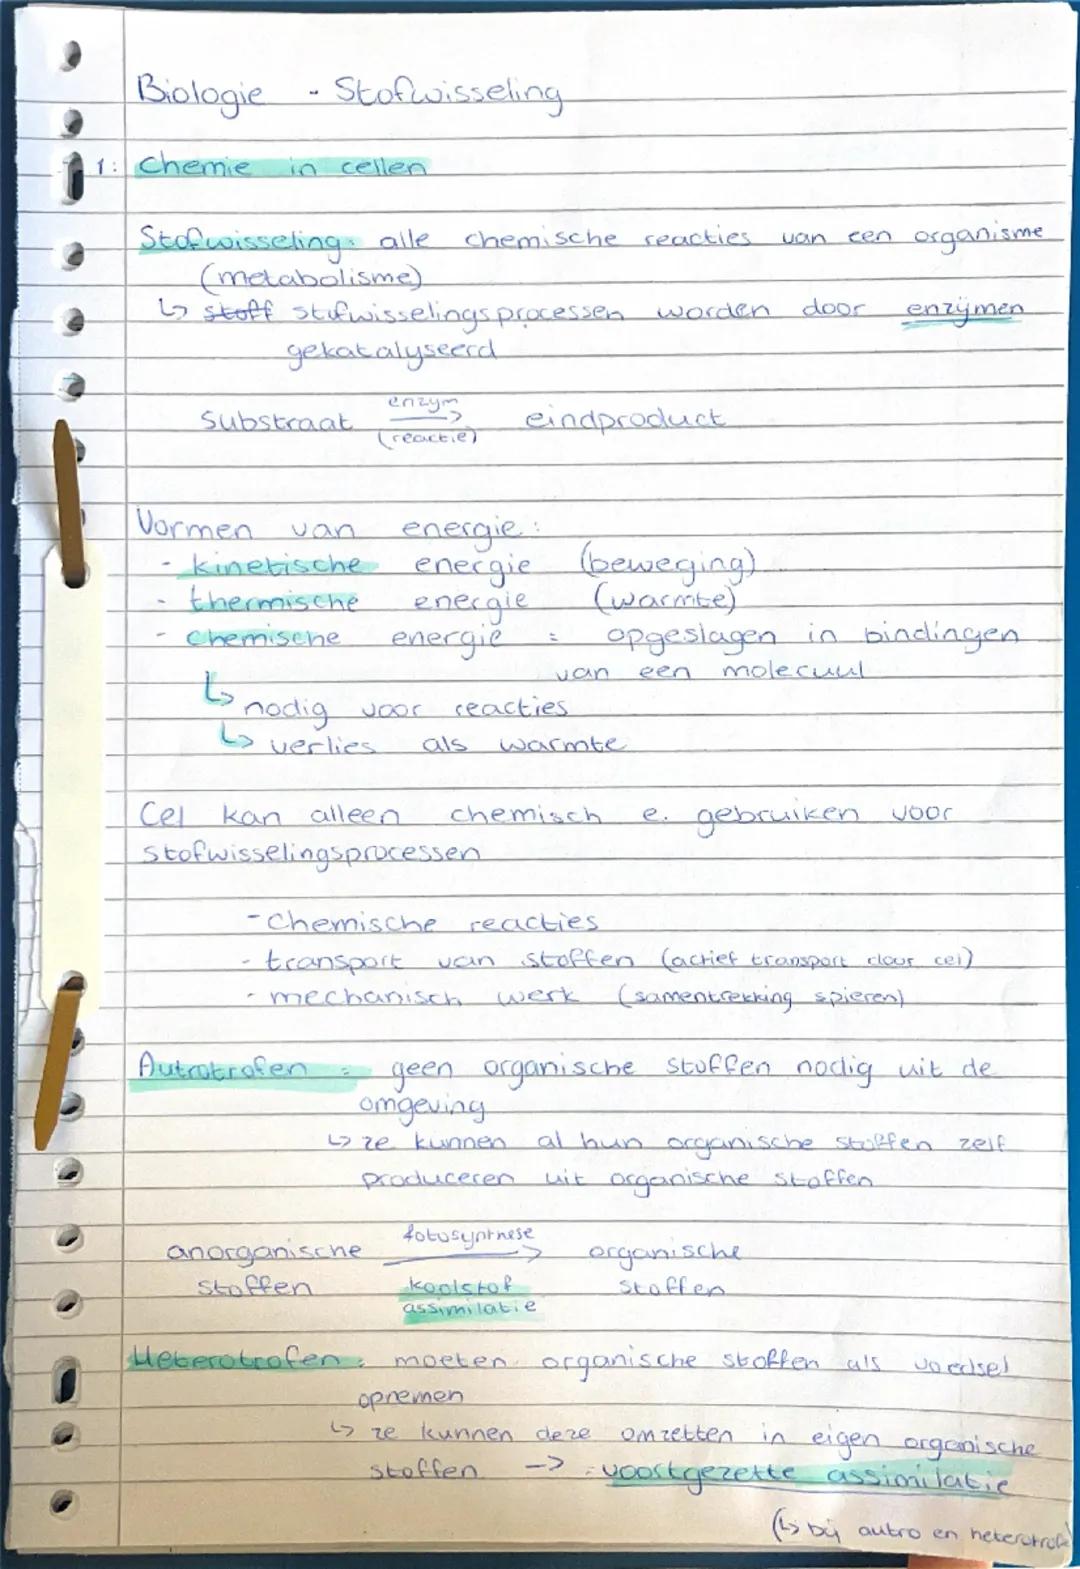 Biologie - Stofwisseling
1: Chemie in cellen
Stofwisseling: alle chemische reacties van een organisme
(metabolisme)
↳ stoff stofwisselingsprocessen worden door enzijmen
gekatalyseerd
enzym
substraat → eindproduct
(reactie)
Vormen van energie:
- kinetische energie (beweging)
- thermische energie (warmte)
- chemische energie = opgeslagen in bindingen
van een molecuul
↳ nodig voor reacties
↳ verlies als warmte
Cel kan alleen chemisch e. gebruiken voor
stofwisselingsprocessen
- chemische reacties
- transport van stoffen (actief transport door cel)
- mechanisch werk (samentrekking spieren)
Autrotrofen = geen organische stoffen nodig uit de
omgeving
↳ ze kunnen al hun organische stoffen zelf
produceren uit organische stoffen
fotosynthese
anorganische → organische
stoffen koolstof stoffen
assimilatie
Heterotrofen: moeten organische stoffen als voedsel
opnemen
↳ ze kunnen deze omzetten in eigen organische
stoffen -> : voortgezette assimilatie
(↳ bij autro en heterotrofe